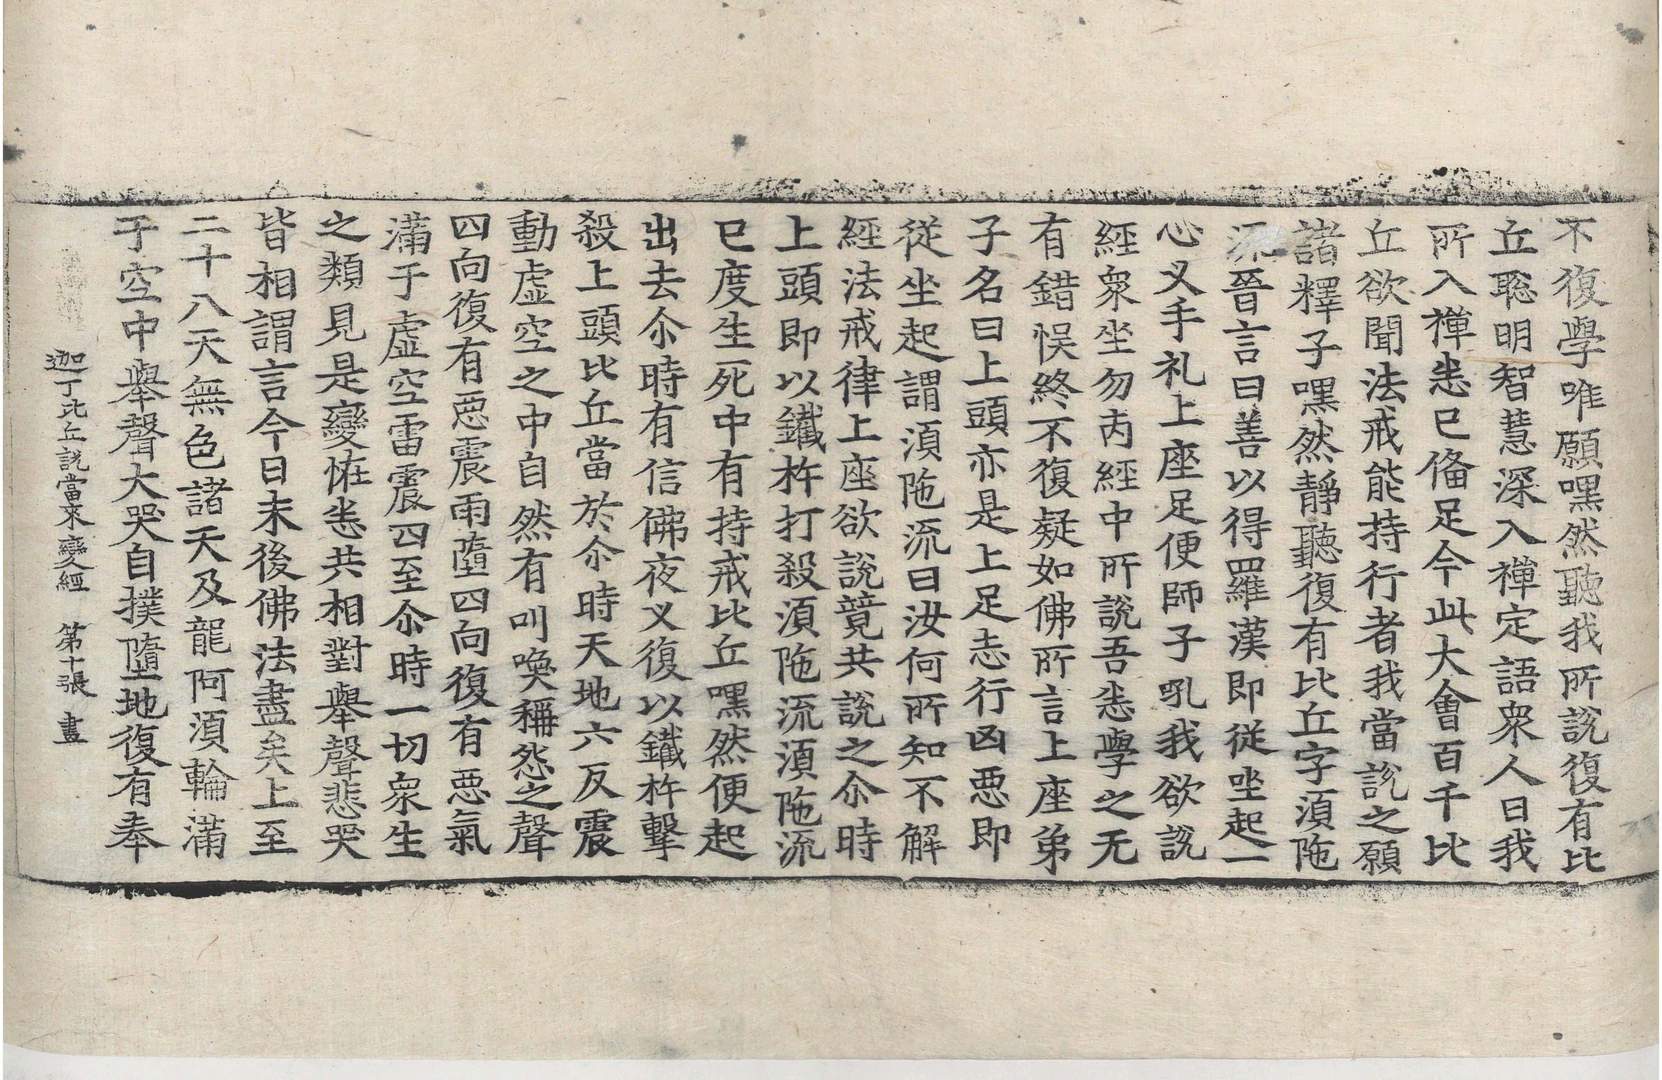 不復學唯願嘿然聽我所說復有比
丘聡明智慧深入禪定語衆人曰我
所入禪悉已俻足今此大會百千比
丘欲聞法戒能持行者我當說之願
諸釋子嘿然靜聽復有比丘字湏陁
流晉言曰善以得羅漢即從坐起一
心叉手礼上座足便師子吼我欲說
經衆坐勿丙經中所說吾悉學之无
有錯悮終不復疑如佛所言上座弟
子名曰上頭亦是上足志行凶惡即
從坐起謂湏陁流曰汝何所知不解
經法戒律上座欲說竟共說之尒時
上頭即以鐵杵打殺湏陁流湏陁流
已度生死中有持戒比丘嘿然便起
出去尒時有信佛夜叉復以鐵杵擊
殺上頭比丘當於尒時天地六反震
動虛空之中自然有叫喚稱怨之聲
四向復有惡震雨墮四向復有惡氣
滿于虛空雷震四至尒時一切衆生
之類見是變恠悉共相對舉聲悲哭
皆相謂言今日末後佛法盡矣上至
二十八天無色諸天及龍阿湏輪滿
于空中舉聲大哭自撲墮地復有奉
迦丁比丘說當來變經 第十張 畫